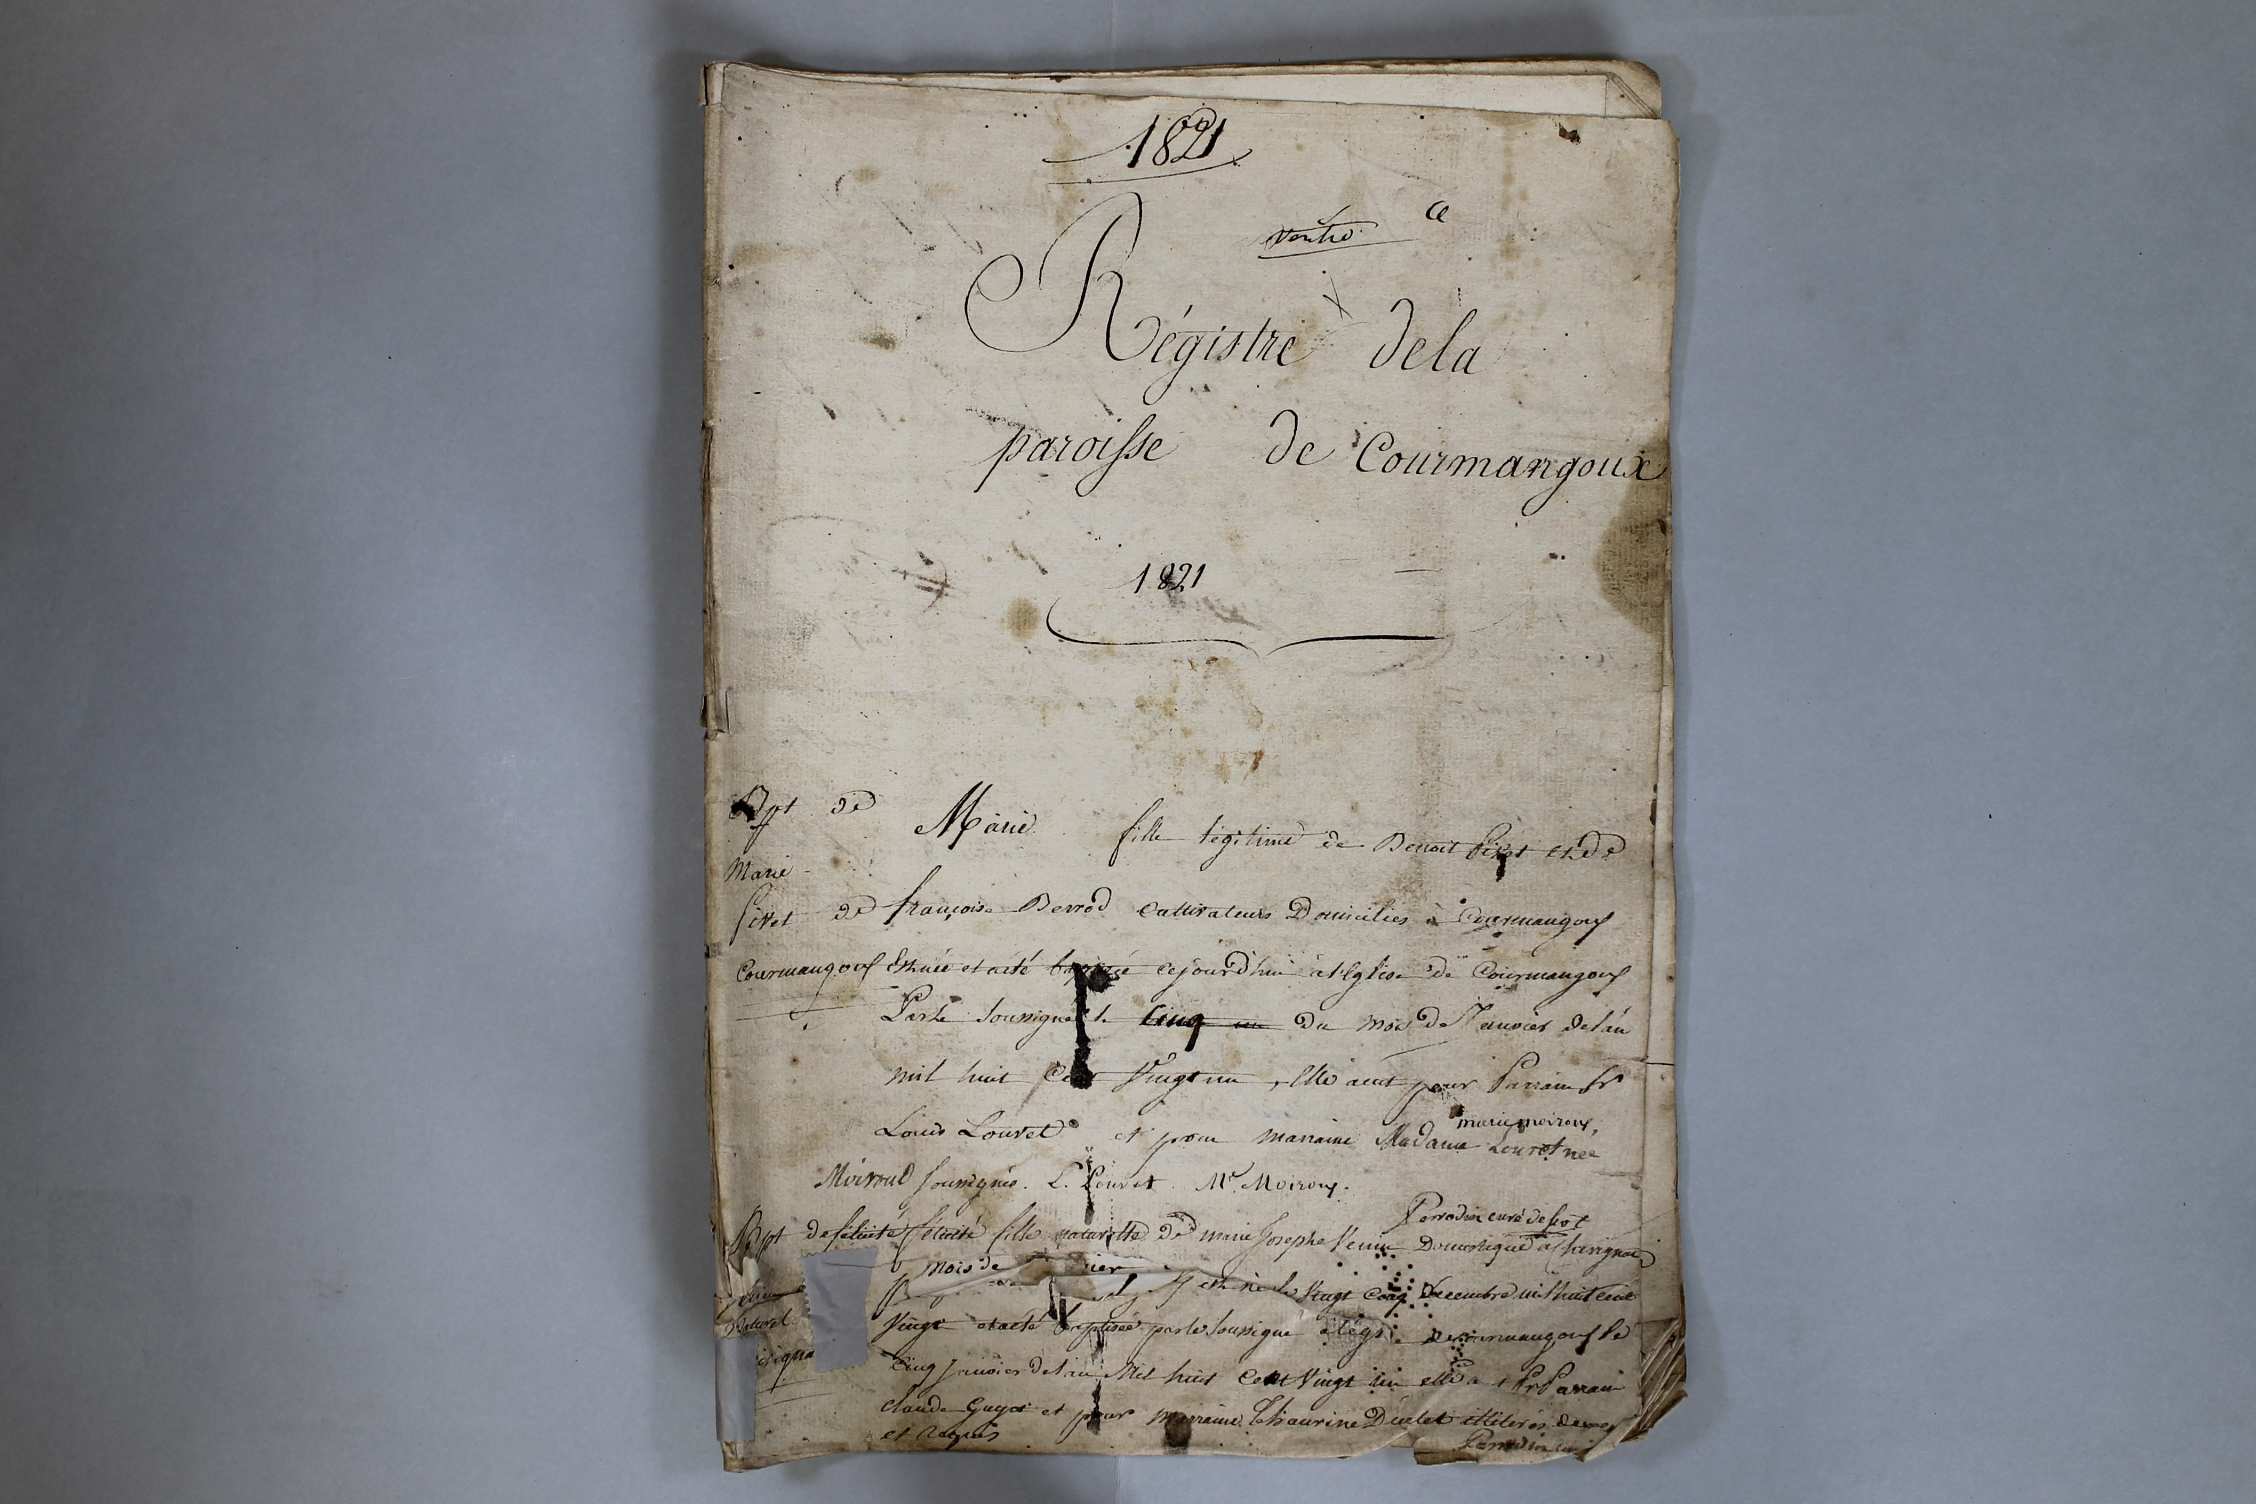 1821
Régistre dela
paroisse de Courmangoux
1821
Bpt de
Marie
de
Courmangoux
Marie fille légitime de Benoit et de
françoise Perrod Cultivateurs Domicilies à Courmangoux
Est née et a été baptisée cejourd'hui à l'Eglise de Courmangoux
Par le soussigné le Cinq du mois de Janvier de l'an
mil huit Cent Vingt un, elle a eut pour Parrain Sr
Louis Louvet et pour marraine Madame Louvet née
marie moiroux,
Moiroud soussignés. L. Louvet Me Moiroux.
Perrodin curé desst
Bpt de félicité
félicité fille naturelle de marie Josephe Domestique a
mois de
est né le Vingt Cinq Décembre mil huit cent
Vingt et a été baptisée par le soussigné à l'égl de Courmangoux le
Cinq Janvier de l'an Mil huit Cent Vingt un elle a Pr Parrain
claude Guyot et pour marraine illiterés de ce
et Requis
Perrodin